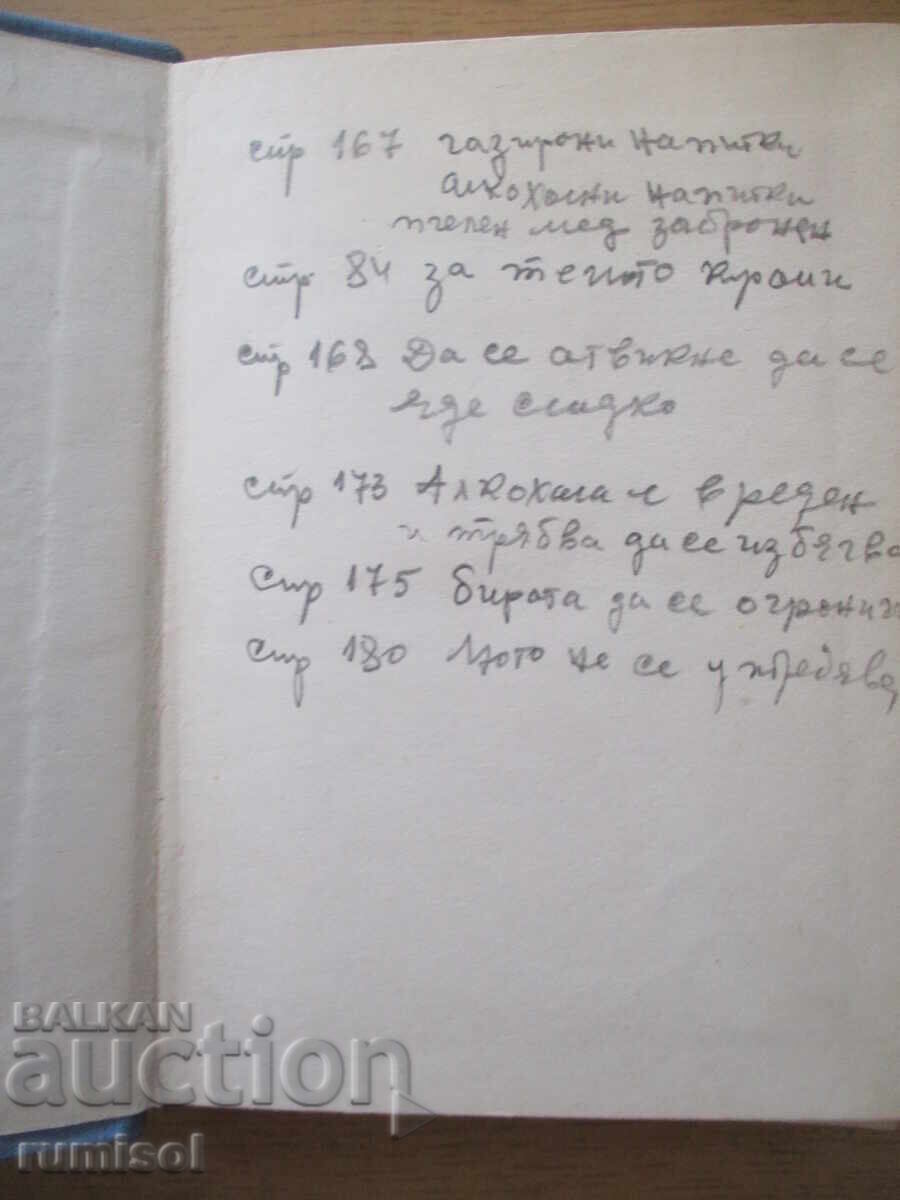 стр 167 газирани напитки
алкохолни напитки
пчелен мед забранен
стр. 84 за
стр 168 Да се атвикне да се
яде сладко
стр 173 Алкохола е вреден
и трябва да се избягва
стр 175 бирата да се огранич
стр 180 не се употребява
BALKAN
auction
rumisol